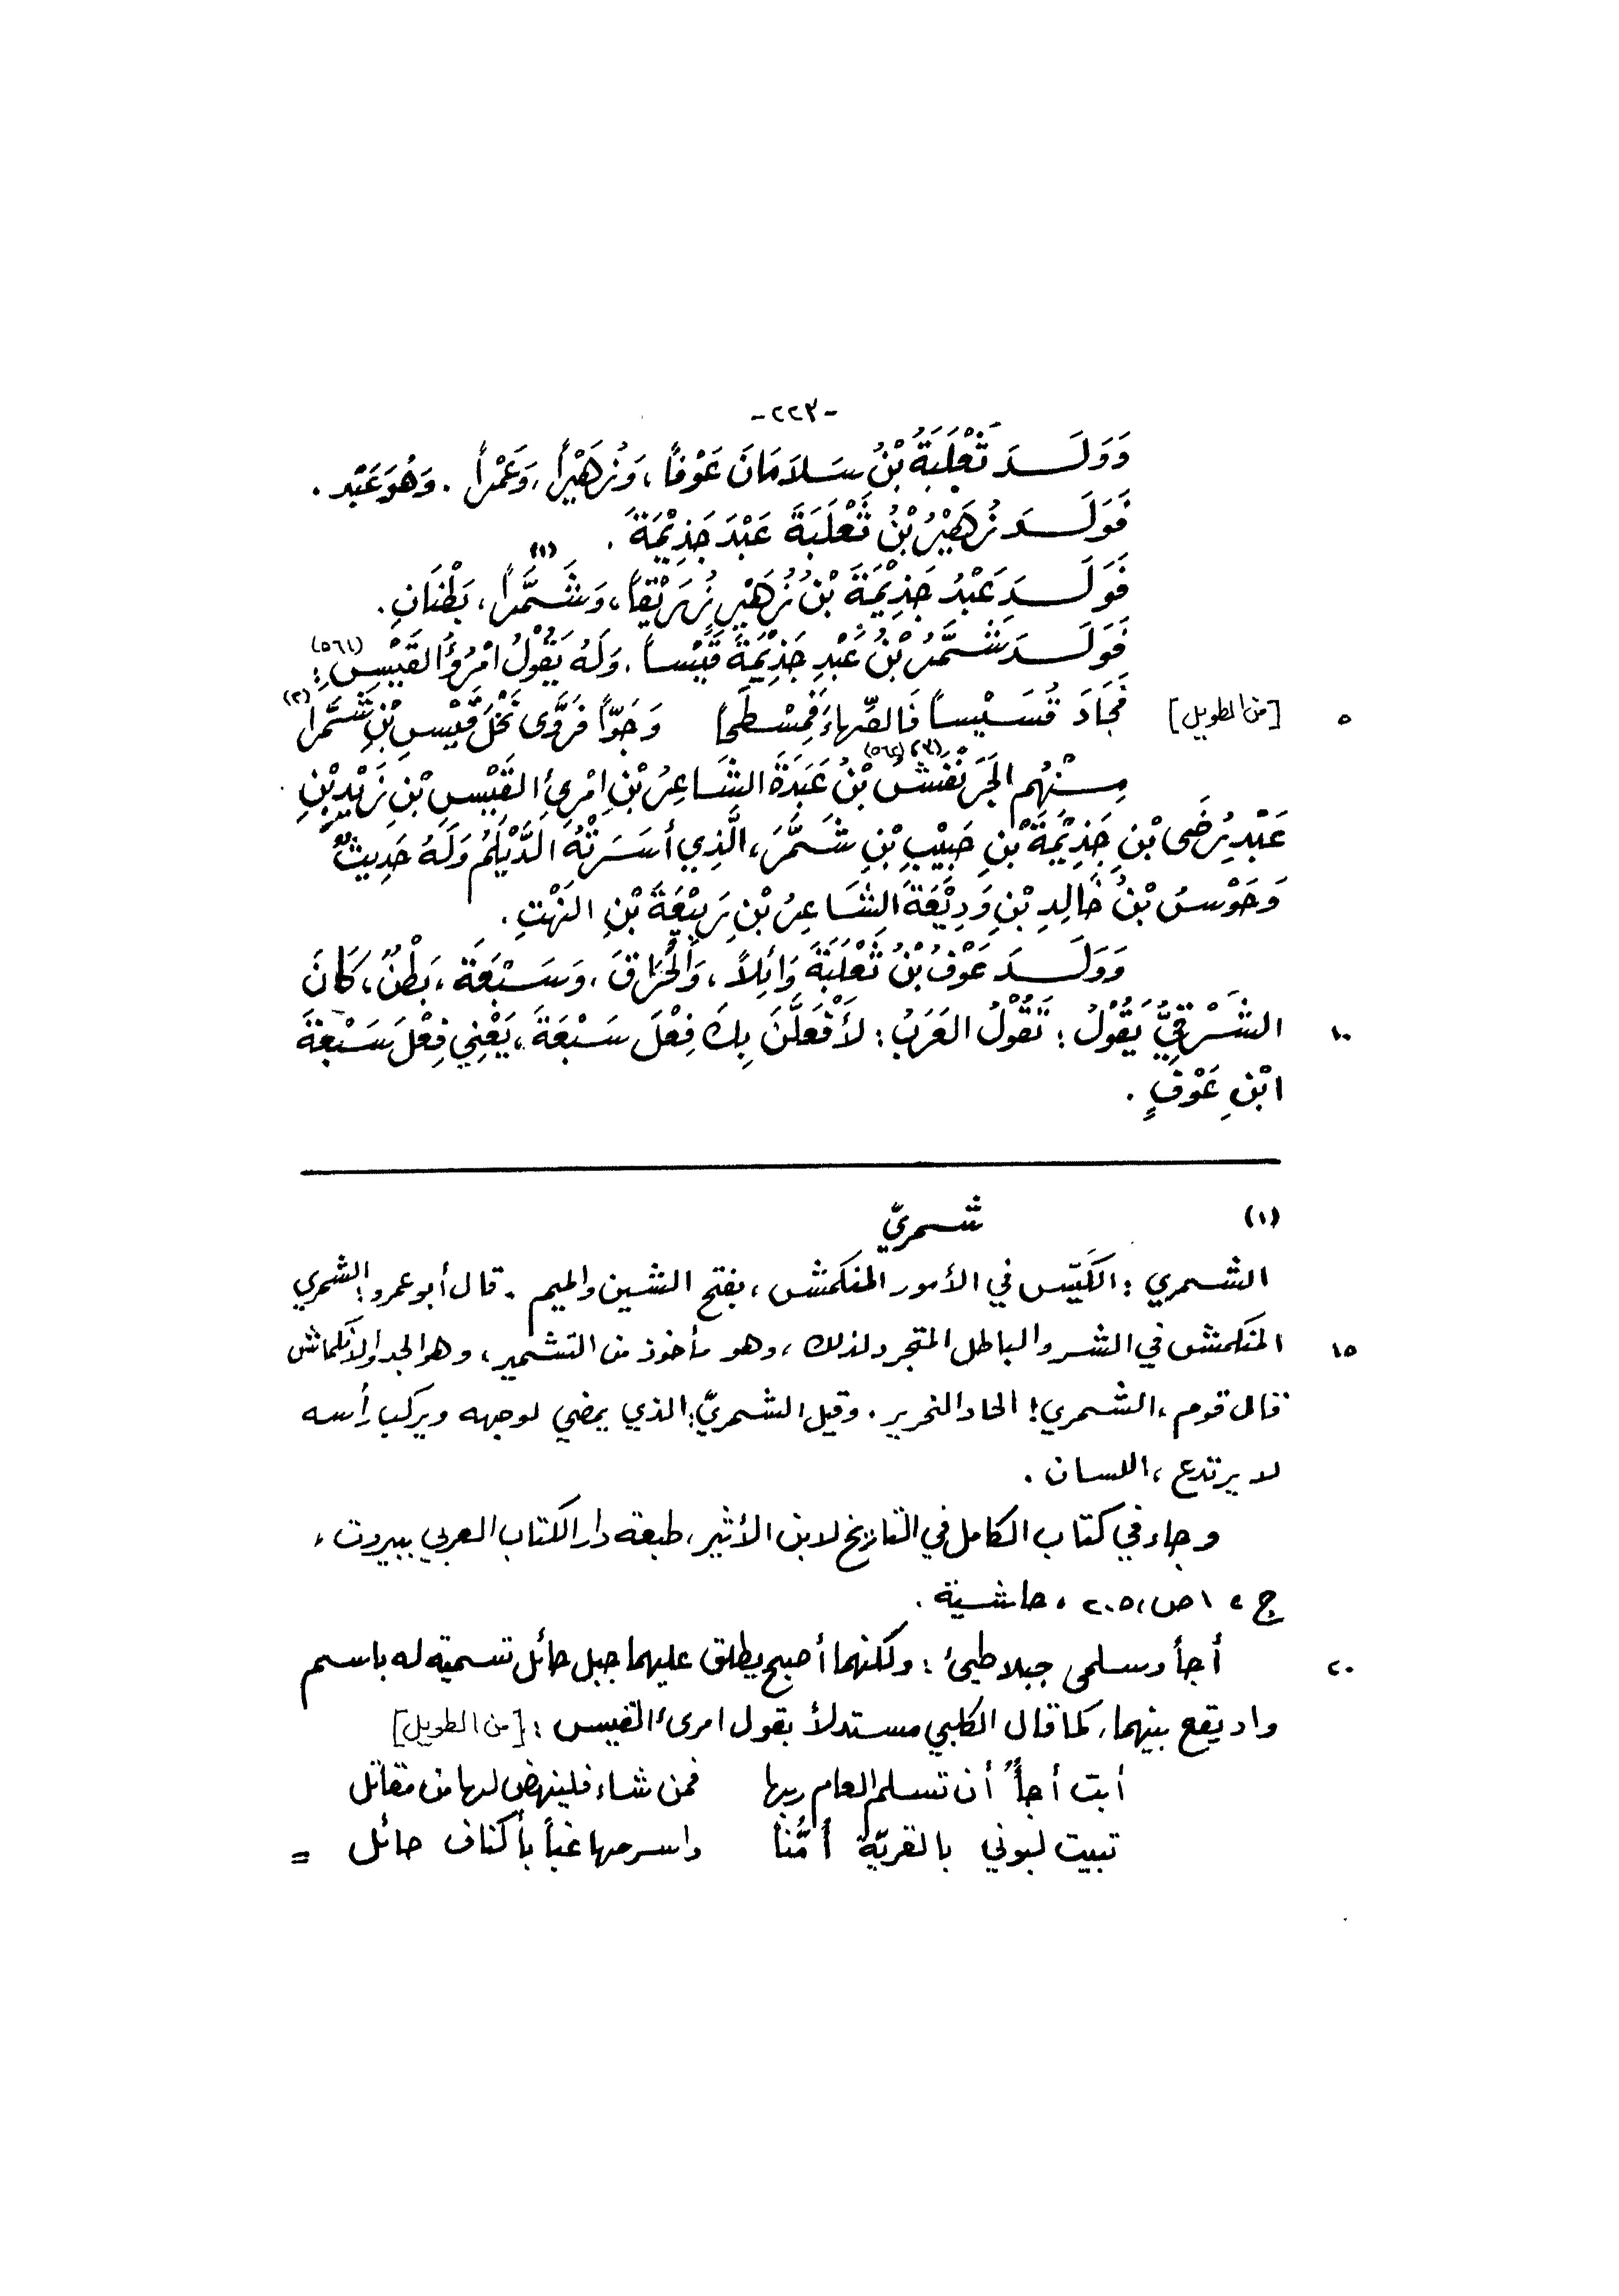 -٢٢٣-
وَوَلَدَ ثَعْلَبَةُ بْنُ سَلاَمَانَ عَوْفاً، وَزُهَيْراً، وَعَمْراً. وَهُوَ عَبْد.
فَوَلَدَ زُهَيْرُ بْنُ ثَعْلَبَةَ عَبْدَ جَذِيْمَةَ.
فَوَلَدَ عَبْدُ جَذِيْمَةَ بْنُ زُهَيْرٍ زُرَيْقاً، وَشَمَّراً(١)، بَطْنَانِ.
فَوَلَدَ شَمَّرُ بْنُ عَبْدِ جَذِيْمَةَ قَيْساً. وَلَهُ يَقُوْلُ امْرُؤُ القَيْسِ(٥٦١):
[من الطويل] فَجَادَ قُسَيْساً فَالصِّهاءَ فَمِسْطَحاً وَجَوّاً فَرَوَّى نَخْلَ قَيْسِ بْنِ شَمَّرَا(٢) ٥
مِنْهُم الجَرَنْفَشُ(٣)(٥٦٢) بْنُ عَبَدَةَ الشَّاعِرُ بْنِ امْرِئِ القَيْسِ بْنِ زَيْدِ بْنِ
عَبْدِ رُضَى بْنِ جَذِيْمَةَ بْنِ حَبِيْبِ بْنِ شَمَّرَ، الَّذِي أَسَرَتْهُ الدَّيْلَمُ وَلَهُ حَدِيثٌ
وَحَوْسُ بْنُ خَالِدِ بْنِ وَدِيْعَةَ الشَّاعِرُ بْنِ رَبِيْعَةَ بْنِ النَهْتِ.
وَوَلَدَ عَوْفُ بْنُ ثَعْلَبَةَ وَائِلاً، وَالحُرَاقَ، وَسَبْعَةَ، بَطْنٌ، كَانَ
الشَّرْقِيُّ يَقُوْلُ: تَقُوْلُ العَرَبُ: لأَفْعَلَنَّ بِكَ فِعْلَ سَبْعَةَ، يَعْنِي فِعْلَ سَبْعَةَ ١٠
ابْنِ عَوْفٍ.
(١) شمريّ
الشمري: الكَيّس في الأمور المنكمش، بفتح الشين والميم. قال أبو عمرو: الشمري
المنكمش في الشر والباطل المتجرد لذلك، وهو مأخوذ من التشمير، وهو الجد والانكماش ١٥
قال قوم، الشمري: الحاد النحرير. وقيل الشمريّ: الذي يمضي لوجهه ويركب رأسه
لا يرتدع، اللسان.
وجاء في كتاب الكامل في التاريخ لابن الأثير، طبعة دار الكتاب العربي ببيروت،
ج، ١ ص، ٢٠٥ ، حاشية.
أجأ وسلمى جبلا طيئ: ولكنهما أصبح يطلق عليهما جبل حائل تسمية له باسم ٢٠
واد يقع بينهما، كما قال الكلبي مستدلاً بقول امرئ القيس: [من الطويل]
أبت أجأٌ أن تسلم العام ربها فمن شاء فلينهض لها من مقاتل
تبيت لبوني بالقريّة أُمَّناً واسرحها غباً بأكناف حائل =